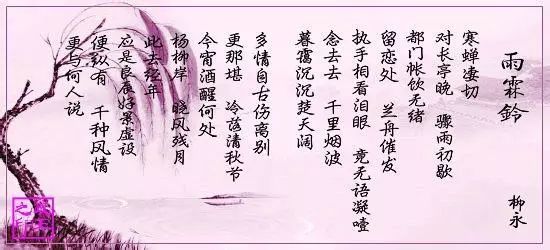 雨霖鈴
柳永
寒蝉凄切
对长亭晚 骤雨初歇
都门帐饮无绪
留恋处 兰舟催发
执手相看泪眼 竟无语凝噎
念去去 千里烟波
暮霭沉沉楚天阔
多情自古伤离别
更那堪 冷落清秋节
今宵酒醒何处
杨柳岸 晓风残月
此去经年
应是良辰好景虚设
便纵有 千种风情
更与何人说
之印